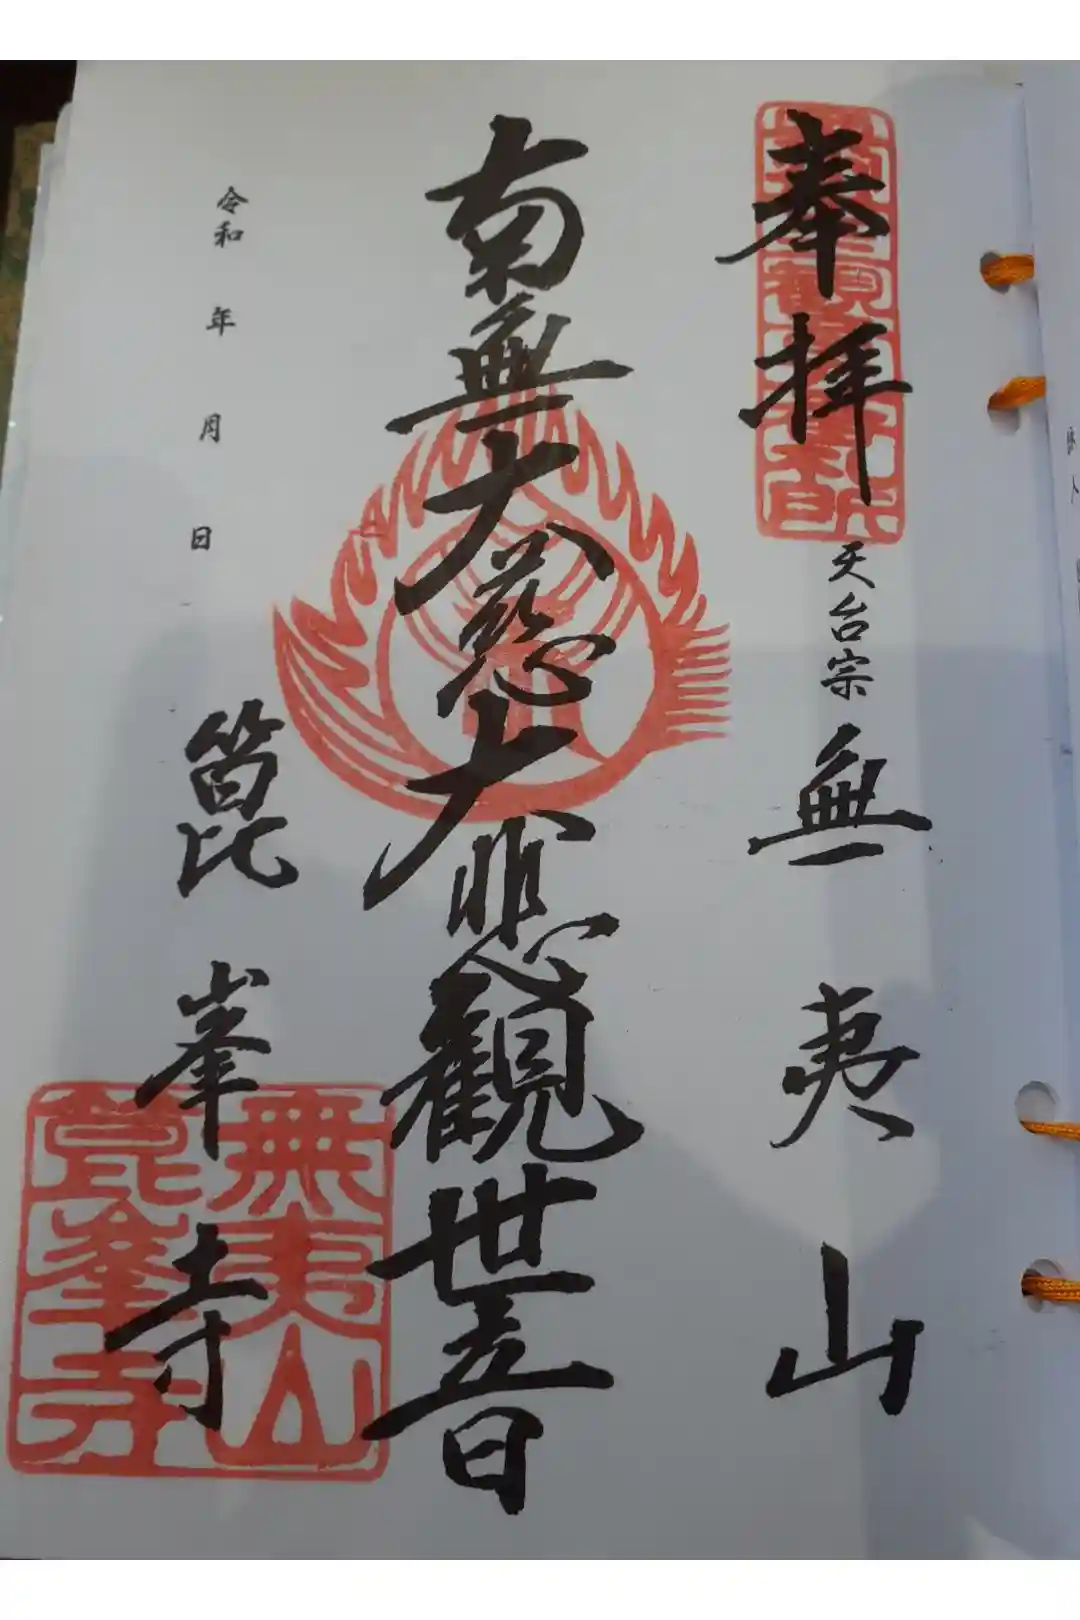 奉拝
天台宗 無夷山
南無大慈大悲観世音
令和 年 月 日
箟峯寺
無夷山
箟峯寺